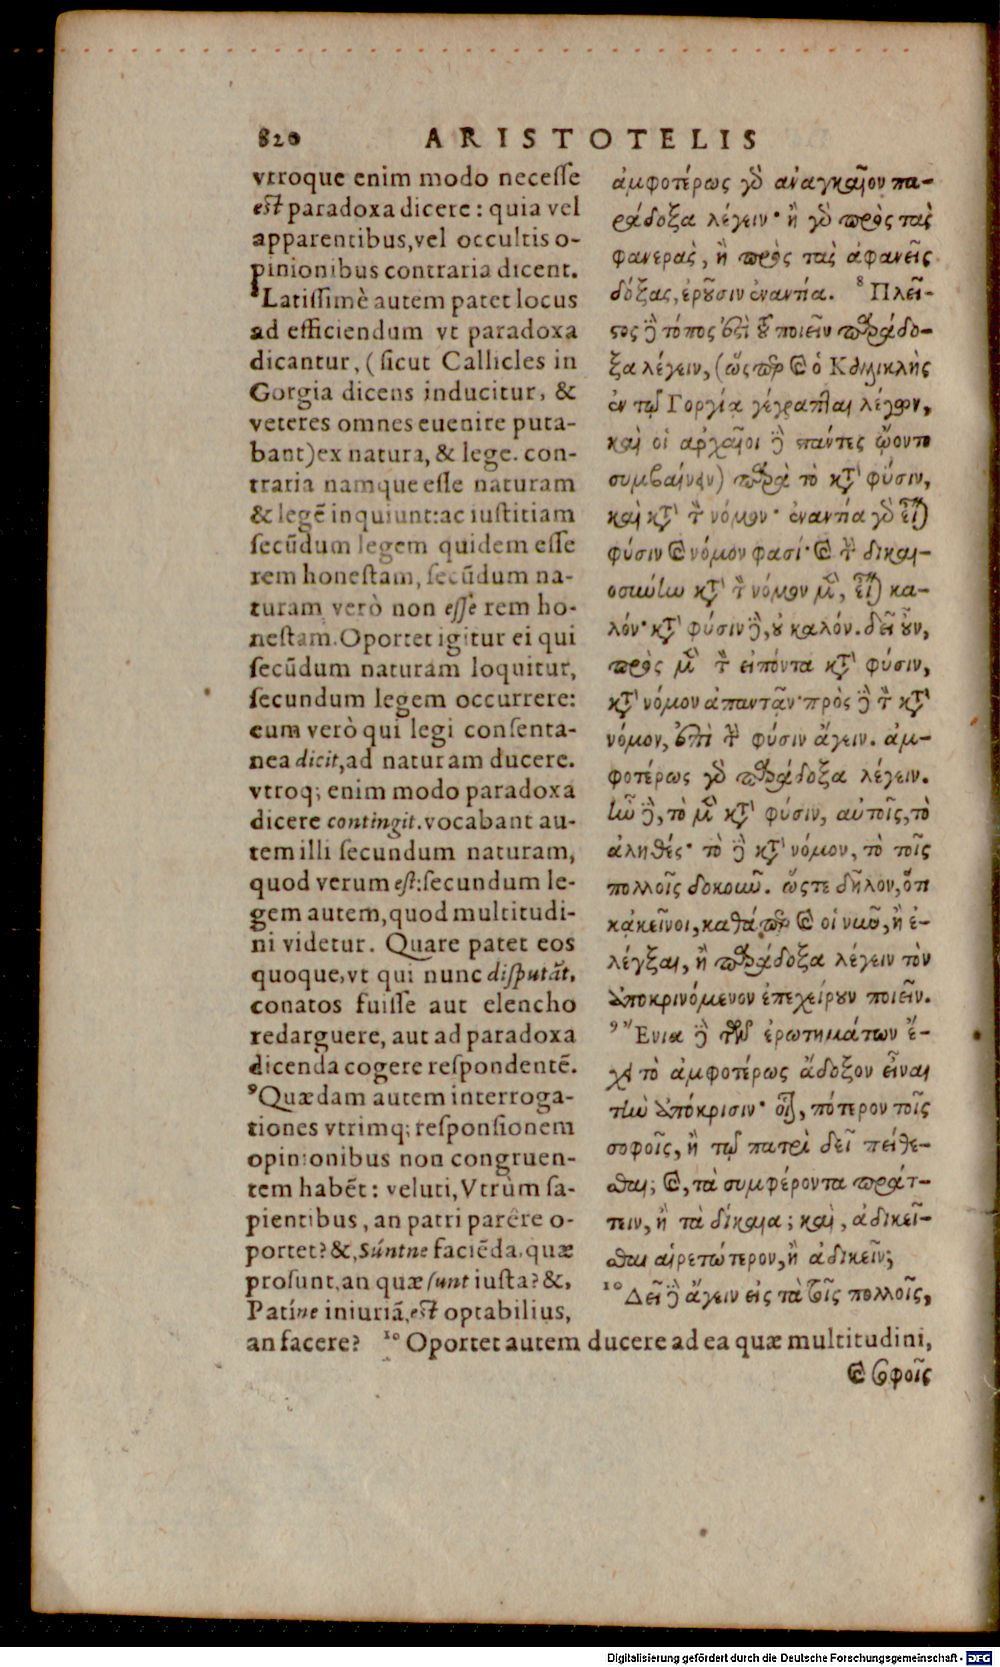 820 ARISTOTELIS
vtroque enim modo necesse
est paradoxa dicere: quia vel
apparentibus, vel occultis o-
pinionibus contraria dicent.
⁸Latissimè autem patet locus
ad efficiendum vt paradoxa
dicantur, (sicut Callicles in
Gorgia dicens inducitur, &
veteres omnes euenire puta-
bant) ex natura, & lege. con-
traria namque esse naturam
& legē inquiunt: ac iustitiam
secūdum legem quidem esse
rem honestam, secūdum na-
turam verò non esse rem ho-
nestam. Oportet igitur ei qui
secūdum naturam loquitur,
secundum legem occurrere:
eum verò qui legi consenta-
nea dicit, ad naturam ducere.
vtroq; enim modo paradoxa
dicere contingit. vocabant au-
tem illi secundum naturam,
quod verum est: secundum le-
gem autem, quod multitudi-
ni videtur. Quare patet eos
quoque, vt qui nunc disputāt,
conatos fuisse aut elencho
redarguere, aut ad paradoxa
dicenda cogere respondentē.
⁹Quædam autem interroga-
tiones vtrimq; responsionem
opinionibus non congruen-
tem habēt: veluti, Vtrùm sa-
pientibus, an patri parêre o-
portet? &, Súntne faciēda, quæ
prosunt, an quæ sunt iusta? &,
Patíne iniuriā, est optabilius,
an facere? ¹⁰ Oportet autem ducere ad ea quæ multitudini,
ἀμφοτέρως γὰρ ἀναγκαῖον πα-
ράδοξα λέγειν· ἢ γὰρ πρὸς τὰς
φανερὰς, ἢ πρὸς τὰς ἀφανεῖς
δόξας, ἐροῦσιν ἐναντία. ⁸ Πλεῖ-
στος δὲ τόπος ἐστὶ τοῦ ποιεῖν παράδο-
ξα λέγειν, (ὥσπερ καὶ ὁ Καλλικλῆς
ἐν τῷ Γοργίᾳ γέγραπται λέγων,
καὶ οἱ ἀρχαῖοι δὲ πάντες ᾤοντο
συμβαίνειν) παρὰ τὸ κατὰ φύσιν,
καὶ κατὰ τὸν νόμον· ἐναντία γὰρ εἶναι
φύσιν καὶ νόμον φασί· καὶ τὴν δικαι-
οσύνην κατὰ τὸν νόμον μὲν, εἶναι κα-
λόν· κατὰ φύσιν δὲ, οὐ καλόν. δεῖ οὖν,
πρὸς μὲν τὸν εἰπόντα κατὰ φύσιν,
κατὰ νόμον ἀπαντᾷν· πρὸς δὲ τὸν κατὰ
νόμον, ἐπὶ τὴν φύσιν ἄγειν. ἀμ-
φοτέρως γὰρ παράδοξα λέγειν.
ἦν δὲ, τὸ μὲν κατὰ φύσιν, αὐτοῖς, τὸ
ἀληθές· τὸ δὲ κατὰ νόμον, τὸ τοῖς
πολλοῖς δοκοῦν. ὥστε δῆλον, ὅτι
κἀκεῖνοι, καθάπερ καὶ οἱ νῦν, ἢ ἐ-
λέγξαι, ἢ παράδοξα λέγειν τὸν
ἀποκρινόμενον ἐπεχείρουν ποιεῖν.
⁹ Ἔνια δὲ τῶν ἐρωτημάτων ἔ-
χει τὸ ἀμφοτέρως ἄδοξον εἶναι
τὴν ἀπόκρισιν· οἷον, πότερον τοῖς
σοφοῖς, ἢ τῷ πατρὶ δεῖ πείθε-
σθαι; καὶ, τὰ συμφέροντα πράτ-
τειν, ἢ τὰ δίκαια; καὶ, ἀδικεῖ-
σθαι αἱρετώτερον, ἢ ἀδικεῖν;
¹⁰ Δεῖ δὲ ἄγειν εἰς τὰ τοῖς πολλοῖς,
καὶ σοφοῖς
Digitalisierung gefördert durch die Deutsche Forschungsgemeinschaft - DFG